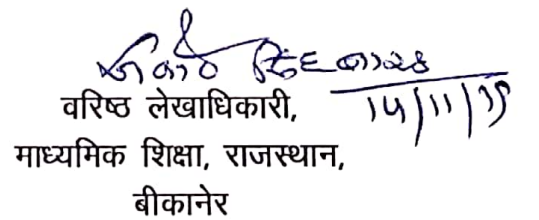 14/11/19
वरिष्ठ लेखाधिकारी,
माध्यमिक शिक्षा, राजस्थान,
बीकानेर